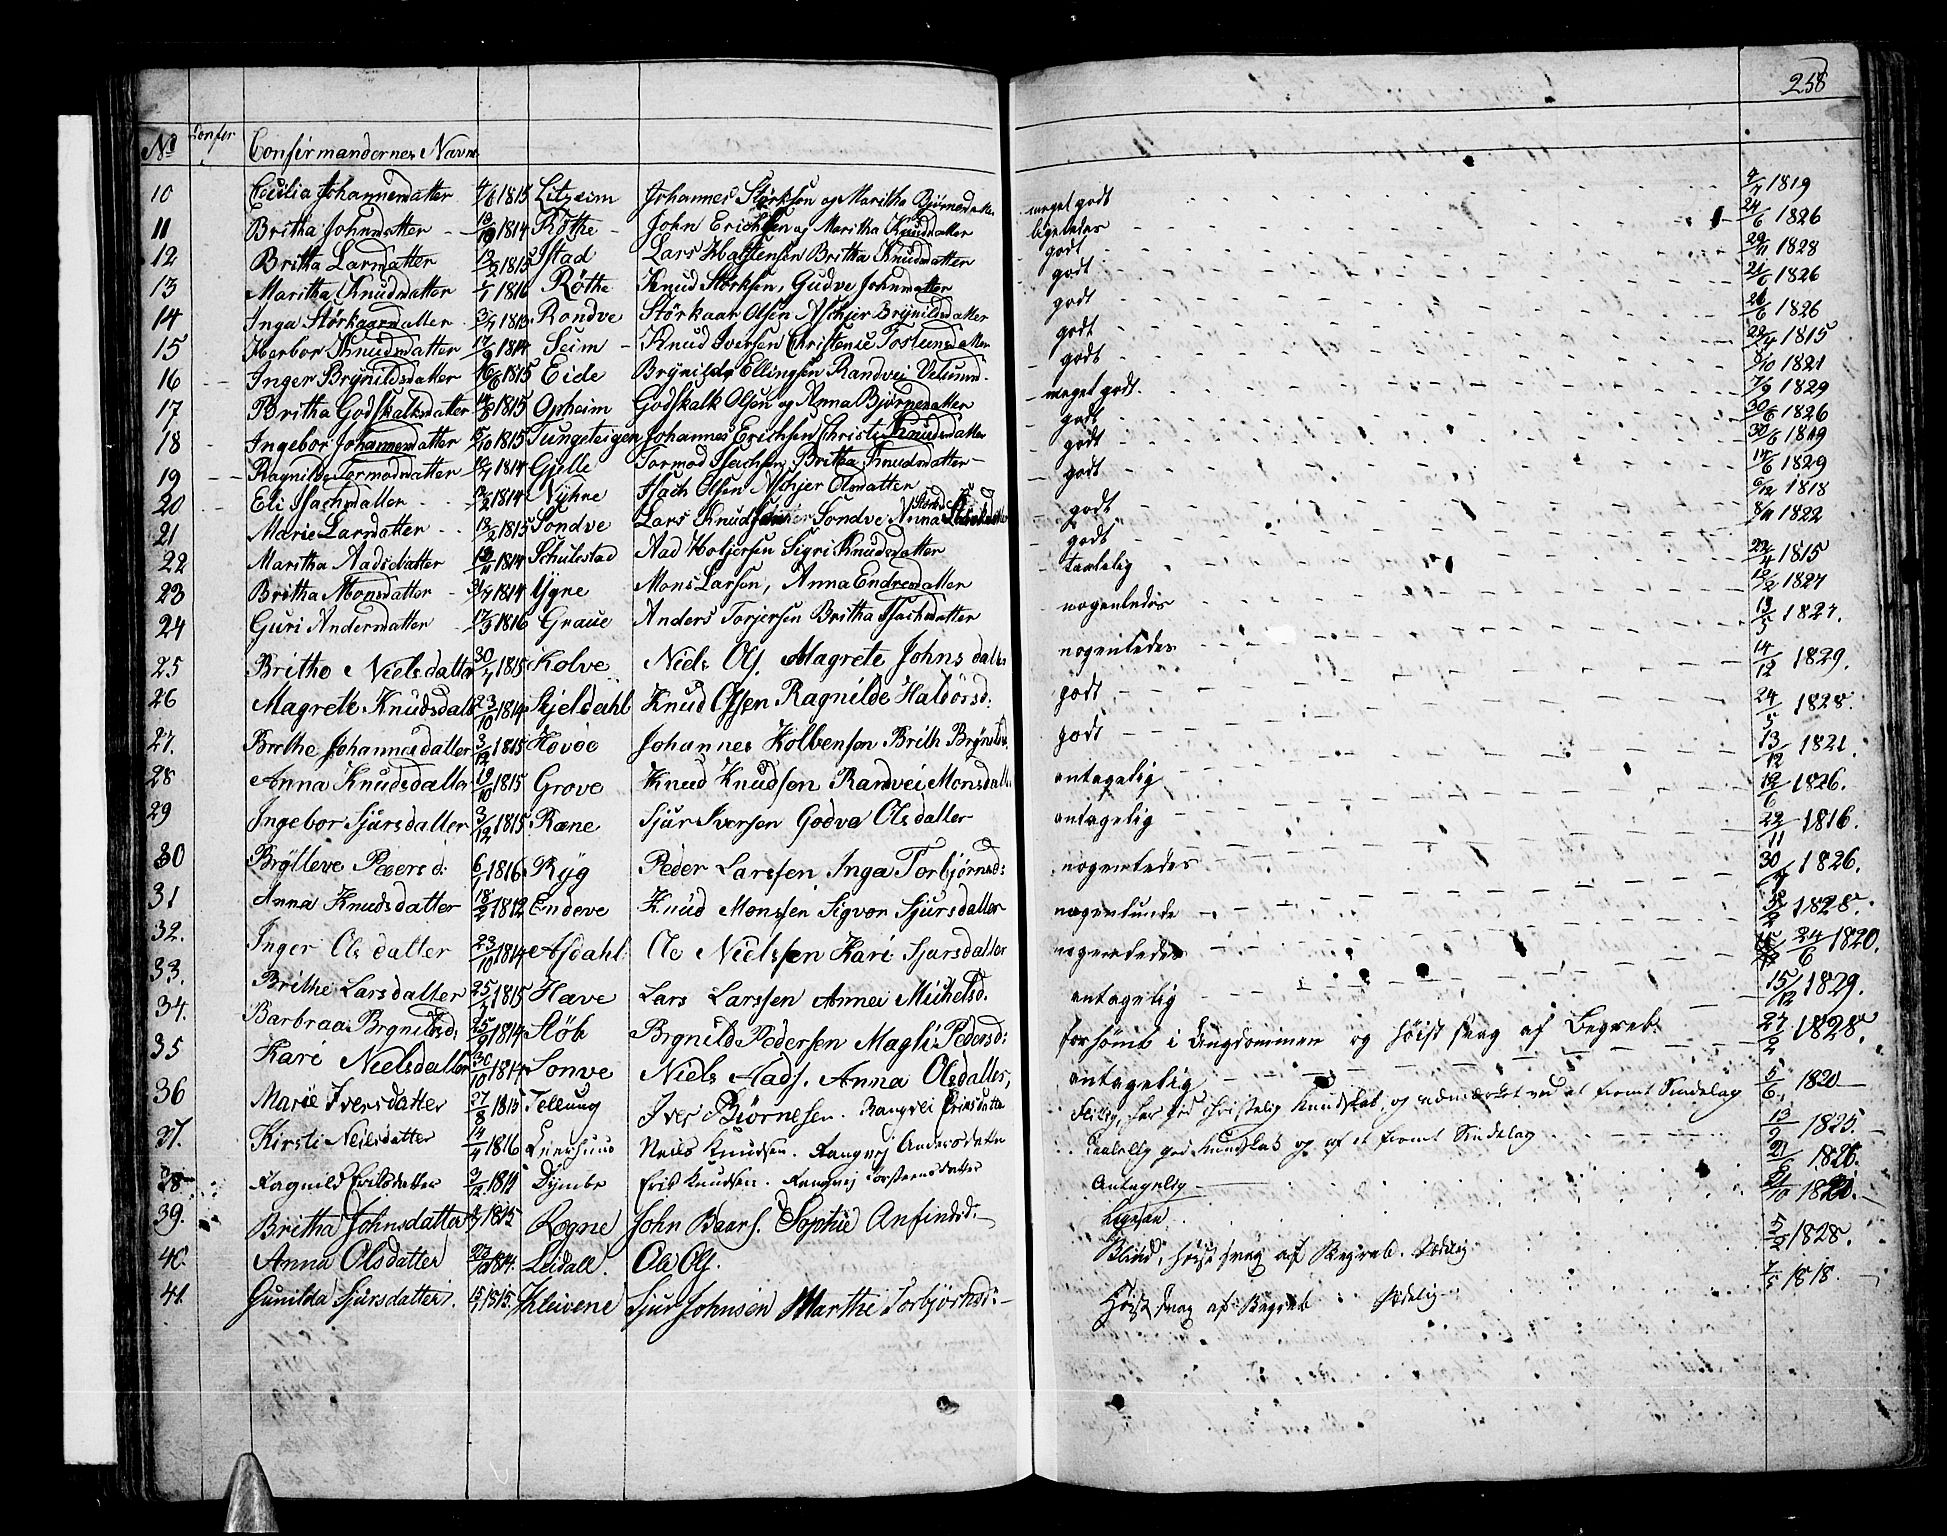 258
No Confer Confirmandernes Navn
10 Cicilia Johannesdatter 4/6 1815 Litzeim Johannes Størksen og Maritha Bjørnsdatter meget godt 4/7 1819
11 Britha Johnsdatter 1814 Röthe John Erichsen og Maritha Knudsdatter ligeledes 24/6 1826
12 Britha Larsdatter 1815 Istad Lars Halstensen Britha Knudsdatter godt 1828
13 Maritha Knudsdatter 1/7 1816 Röthe Knud Størksen, Gudve Johnsdatter godt 1826
14 Inga Störkaarsdatter 3/7 1813 Rondve Störkaar Olsen Aschjer Brÿnildsdatter godt 1826
15 Herbor Knudsdatter 17/9 1814 Seim Knud Iversen Christense Tostensdatter godt 1815
16 Inger Brÿnildsdatter 1815 Eide Brÿnild Ellingsen Randvei godt 8/10 1821
17 Britha Godskalksdatter 1815 Opheim Godskalk Olsen og Anna Bjørnsdatter meget godt 7/9 1829
18 Ingebor Johannesdatter 1815 Tungeteigen Johannes Erichsen Christi Knudsdatter godt 30/6 1826
19 Ragnilde Tormodsdatter 1814 Gjelle Tormod Isachsen Britha Knudsdatter godt 30/6 1819
20 Eli Isachsdatter 1814 Nÿhre Isach Olsen Aschjer Olsdatter godt 14/6 1829
21 Marie Larsdatter 13/2 1815 Söndve Lars Knudsen Söndve Anna godt 6/12 1818
22 Maritha Aadsdatter 1814 Schulestad Aad Holjersen Sigri Knudsdatter godt 8/11 1822
23 Britha Monsdatter 1814 Ygre Mons Larsen, Anna Endresdatter taalelig 22/4 1815
24 Guri Andersdatter 17/3 1816 Graue Anders Torjersen Britha Isachsdatter nogenledes 12/2 1827
25 Britho Nielsdatter 30/7 1815 Kolve Niels Ols. Magrete Johnsdatter nogenledes 13/5 1827.
26 Magrete Knudsdatt 23/10 1814 Skjeldahl Knud Olssen Ragnilde Haldorsd: godt 14/12 1829.
27. Brithe Johannesdatter 3/12 1815 Hovoe Johannes Kolbenson Brith Brÿnilsd. godt 24/5 1828.
28 Anna Knudsdatter 19/10 1815 Grove Knud Knudson Randvei Monsdatt antagelig 13/12 1821.
29 Ingebor Sjursdatter 3/12 1815 Rœne Sjur Iversen Godva Olsdatter antagelig 12/6 1826.
30 Brÿlleve Pedersd: 6/1 1816 Rÿg Peder Larssen Inga Torbjörnsd: nogenledes 22/11 1816.
31 Anna Knudsdatter 18/2 1812 Endeve Knud Monssen Sigvor Sjursdatter nogenlunde 30/7 1826.
32. Inger Olsdatter 23/10 1814 Asdahl Ole Nielssen Kari Sjursdatter nogenledes 1828.
33. Brithe Larsdatter 25/1 1815 Have Lars Larssen Annei Michelsd. antagelig 24/6 1820.
34. Barbraa Brÿnildsd. 25/9 1814 Støle Brÿnild Pedersen Magli Pedersd: forsömt i Ungdommen og höist svag af Begreb 15/12 1829.
35 Kari Nielsdatter 30/10 1814 Sonve Niels Aads. Anna Olsdatter, antagelig 27/2 1828.
36 Marie Iversdatter 27/8 1815 Tellung Iver Björnesen. Rangvei Eriksdatter Flittig, har god christelig Kundskab, og udmærket ved et fromt Sindelag 5/6 1820
37. Kirsti Neilsdatter 14/4 1816 Leershuus Neils Knudsen. Rangvej Andersdatter Taalelig god Kundskab og af et fromt Sindelag 13/9 1825.
38 Ragnild Eriksdatter 3/12 1814 Dymbe Erik Knudsen. Rangvej Torstensdatter Antagelig 21/8 1826.
39. Britha Johnsdatter 1815 Rogne John Baars. Sophie Anfindsd. Ligesaa 21/10
40. Anna Olsdatter 1814. Leidall. Ole Ols. Blind, höist svag af Begreb. Sædelig 5/2 1828.
41. Gunilda Sjursdatter. 1815. Kleivene Sjur Johnsen Marthe Torbjörnsd: Höist svag af Begreb Sædelig 7/5 1818.